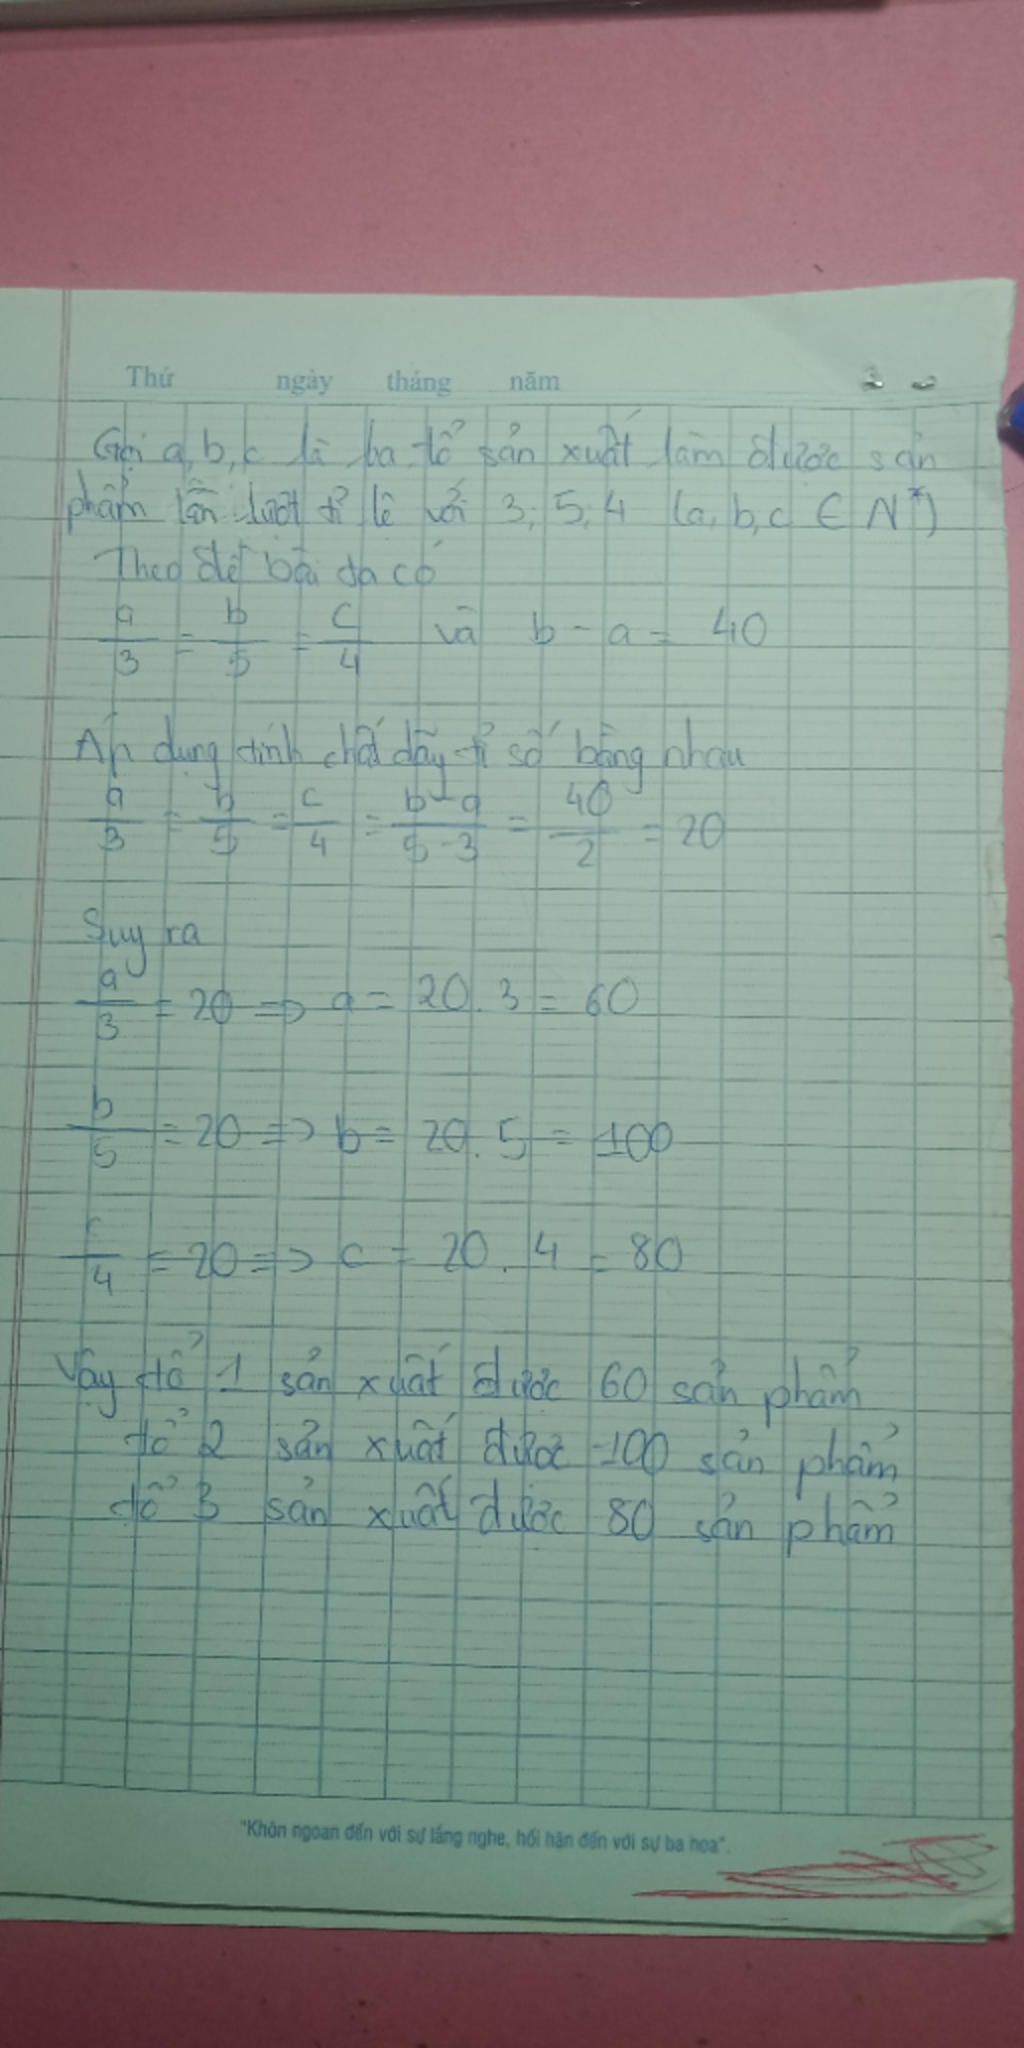 Thứ ngày tháng năm
Gọi a, b, c là ba tổ sản xuất làm được sản
phẩm lần lượt tỉ lệ với 3, 5, 4 (a, b, c ∈ N*)
Theo đề bài ta có
a/3 = b/5 = c/4 và b - a = 40
Áp dụng tính chất dãy tỉ số bằng nhau
a/3 = b/5 = c/4 = b-a/5-3 = 40/2 = 20
Suy ra
a/3 = 20 => a = 20 . 3 = 60
b/5 = 20 => b = 20 . 5 = 100
c/4 = 20 => c = 20 . 4 = 80
Vậy tổ 1 sản xuất được 60 sản phẩm
tổ 2 sản xuất được 100 sản phẩm
tổ 3 sản xuất được 80 sản phẩm
"Khôn ngoan đến với sự lắng nghe, hối hận đến với sự ba hoa".